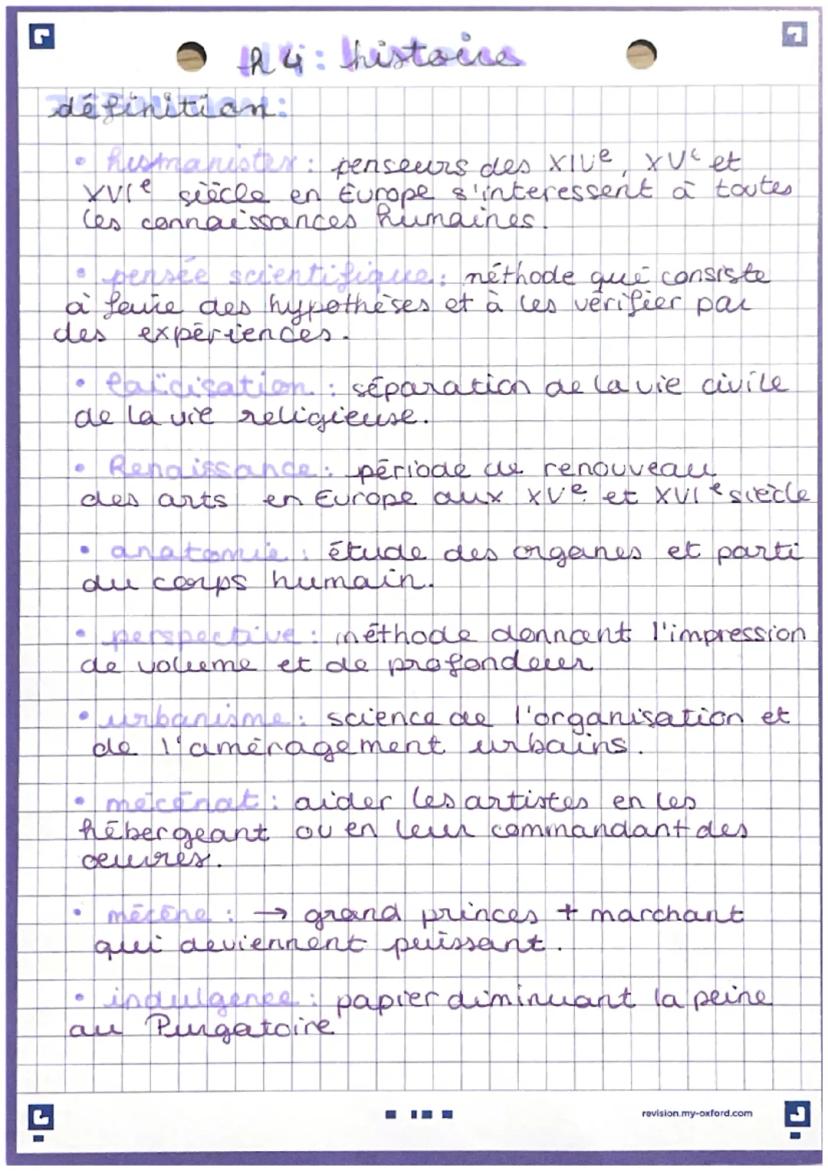 h 4 : histoire
définition :
• humanistes : penseurs des XIVe, XVe et
XVIe siècle en Europe s'interessent à toutes
les connaissances humaines.
• pensée scientifique : méthode qui consiste
à faire des hypothèses et à les vérifier par
des expériences.
• laïcisation : séparation de la vie civile
de la vie religieuse.
• Renaissance : période de renouveau
des arts en Europe aux XVe et XVIe siècle
• anatomie : étude des organes et parti
du corps humain.
• perspective : méthode donnant l'impression
de volume et de profondeur
• urbanisme : science de l'organisation et
de l'aménagement urbains.
• mécénat : aider les artistes en les
hébergeant ou en leur commandant des
œuvres.
• mécène : → grand princes + marchant
qui deviennent puissant.
• indulgence : papier diminuant la peine
au Purgatoire
revision.my-oxford.com